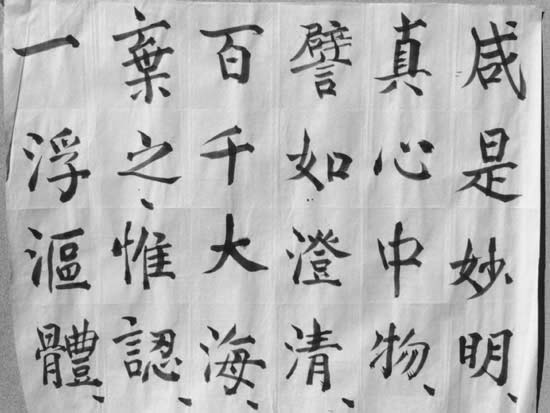 咸是妙明、
真心中物、
譬如澄清、
百千大海、
棄之、惟認、
一浮漚體、